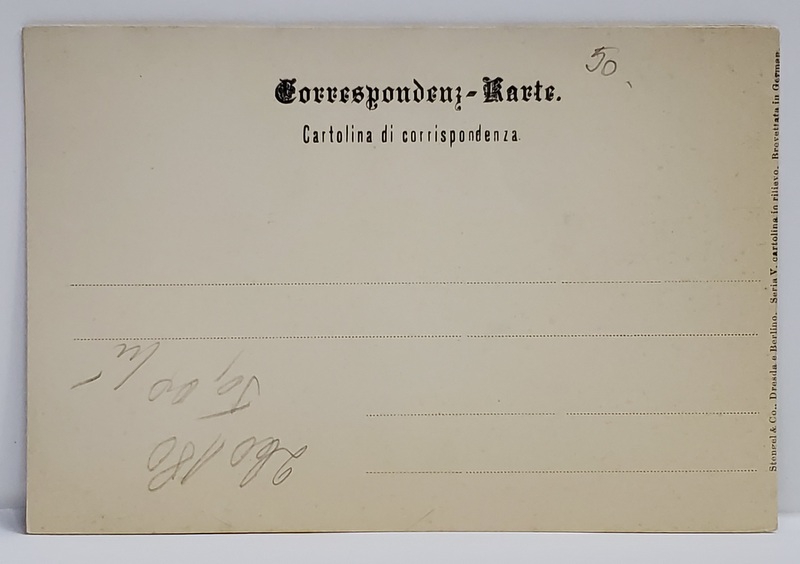 50
Correspondenz-Karte.
Cartolina di corrispondenza.
Stengel & Co., Dresda e Berlino. Seria V. cartolina in rilievo. Brevettata in German
260180
50,00